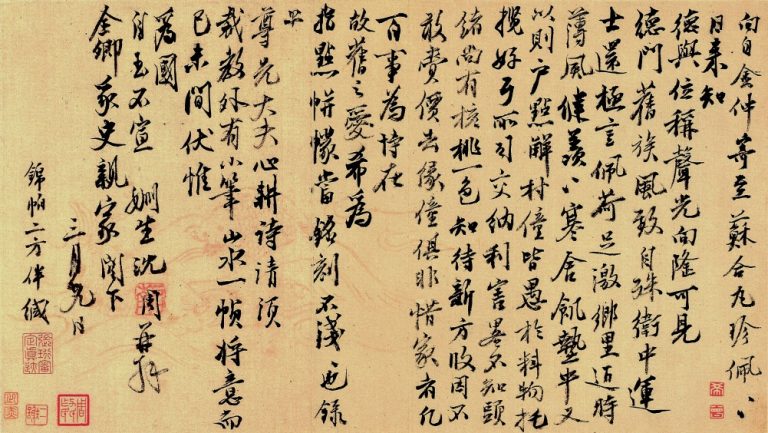 向自金仲寄至蘇合丸珍佩〻
日来知
德與位稱聲光向隆可見
德門舊族風致自殊衛中運
士還極言佩荷足激鄉里近時
薄風健羨〻寒舍飢墊中又
以則户點解村僮皆愚於料物托
攬好弓所司交納利害畧不知頭
緒尚有核桃一色知待新方收因不
敢費價去緣僮俱非惜家者凡
百事為悖在
故舊之愛希為
指點帡幪當銘刻不淺也録
上
尊先大夫心耕詩請須
裁教外有小筆山水一幀將意而
已未間伏惟
為國
自玉不宣 姻生沈周再拜
金卿家史親家閣下
三月九日
錦帕二方伴緘